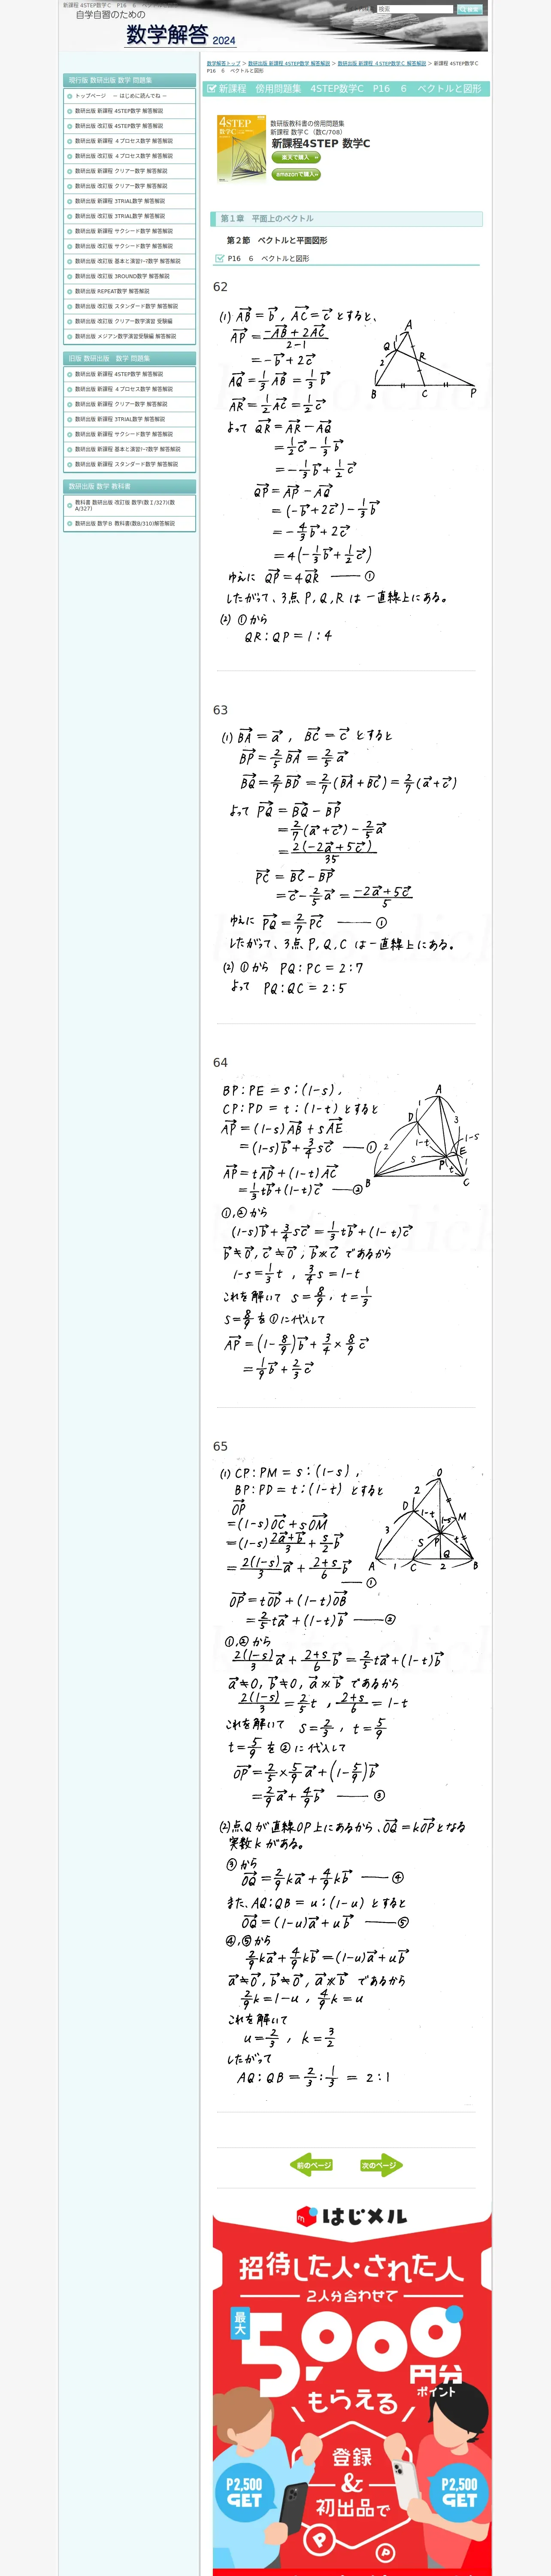 新課程 4STEP数学Ｃ　P16　６　ベクトルと図形
自学自習のための
数学解答 2024
検索
検索
数学解答トップ ＞ 数研出版 新課程 4STEP数学 解答解説 ＞ 数研出版 新課程 4STEP数学Ｃ 解答解説 ＞ 新課程 4STEP数学Ｃ
P16　６　ベクトルと図形
新課程　傍用問題集　4STEP数学Ｃ　P16　６　ベクトルと図形
現行版 数研出版 数学 問題集
トップページ　－ はじめに読んでね －
数研出版 新課程 4STEP数学 解答解説
数研出版 改訂版 4STEP数学 解答解説
数研出版 新課程 ４プロセス数学 解答解説
数研出版 改訂版 ４プロセス数学 解答解説
数研出版 新課程 クリアー数学 解答解説
数研出版 改訂版 クリアー数学 解答解説
数研出版 新課程 3TRIAL数学 解答解説
数研出版 改訂版 3TRIAL数学 解答解説
数研出版 新課程 サクシード数学 解答解説
数研出版 改訂版 サクシード数学 解答解説
数研出版 改訂版 基本と演習ﾃｰﾏ数学 解答解説
数研出版 改訂版 3ROUND数学 解答解説
数研出版 REPEAT数学 解答解説
数研出版 改訂版 スタンダード数学 解答解説
数研出版 改訂版 クリアー数学演習 受験編
数研出版 メジアン数学演習受験編 解答解説
旧版 数研出版　数学 問題集
数研出版 新課程 4STEP数学 解答解説
数研出版 新課程 ４プロセス数学 解答解説
数研出版 新課程 クリアー数学 解答解説
数研出版 新課程 3TRIAL数学 解答解説
数研出版 新課程 サクシード数学 解答解説
数研出版 新課程 基本と演習ﾃｰﾏ数学 解答解説
数研出版 新課程 スタンダード数学 解答解説
数研出版 数学 教科書
教科書 数研出版 改訂版 数学(数Ⅰ/327)(数
A/327)
数研出版 数学Ｂ 教科書(数B/310)解答解説
4STEP
数学C
数研出版教科書の傍用問題集
新課程 数学Ｃ（数C/708）
新課程4STEP 数学C
楽天で購入 »
amazonで購入 »
第１章　平面上のベクトル
第２節　ベクトルと平面図形
P16　６　ベクトルと図形
62
(1) AB→=b→, AC→=c→とすると、
AP→=(-AB→+2AC→)/(2-1)
=-b→+2c→
AQ→=1/3AB→=1/3b→
AR→=1/2AC→=1/2c→
よって QR→=AR→-AQ→
=1/2c→-1/3b→
=-1/3b→+1/2c→
QP→=AP→-AQ→
=(-b→+2c→)-1/3b→
=-4/3b→+2c→
=4(-1/3b→+1/2c→)
ゆえに QP→=4QR→ ―①
したがって、3点P,Q,Rは一直線上にある。
(2) ①から
QR:QP=1:4
A
Q
1
2
R
B
C
P
63
(1) BA→=a→, BC→=c→とすると
BP→=2/5BA→=2/5a→
BQ→=2/7BD→=2/7(BA→+BC→)=2/7(a→+c→)
よって PQ→=BQ→-BP→
=2/7(a→+c→)-2/5a→
=2(-2a→+5c→)/35
PC→=BC→-BP→
=c→-2/5a→=(-2a→+5c→)/5
ゆえに PQ→=2/7PC→ ―①
したがって、3点P,Q,Cは一直線上にある。
(2) ①から PQ:PC=2:7
よって PQ:QC=2:5
64
BP:PE=s:(1-s),
CP:PD=t:(1-t)とすると
AP→=(1-s)AB→+sAE→
=(1-s)b→+3/4sc→ ―①
AP→=tAD→+(1-t)AC→
=1/3tb→+(1-t)c→ ―②
①,②から
(1-s)b→+3/4sc→=1/3tb→+(1-t)c→
b→≠0→, c→≠0→, b→∦c→であるから
1-s=1/3t , 3/4s=1-t
これを解いて s=8/9, t=1/3
s=8/9を①に代入して
AP→=(1-8/9)b→+3/4×8/9c→
=1/9b→+2/3c→
A
1
D
3
2
1-t
1-s
E
s
P
t
1
B
C
65
(1) CP:PM=s:(1-s),
BP:PD=t:(1-t)とすると
OP→
=(1-s)OC→+sOM→
=(1-s)(2a→+b→)/3+s/2b→
=2(1-s)/3a→+(2+s)/6b→
―①
OP→=tOD→+(1-t)OB→
=2/5ta→+(1-t)b→ ―②
①,②から
2(1-s)/3a→+(2+s)/6b→=2/5ta→+(1-t)b→
a→≠0, b→≠0, a→∦b→であるから
2(1-s)/3=2/5t , (2+s)/6=1-t
これを解いて s=2/3, t=5/9
t=5/9を②に代入して
OP→=2/5×5/9a→+(1-5/9)b→
=2/9a→+4/9b→ ―③
O
2
D
1-t
1-s
M
3
s
P
t
Q
A
1
C
2
B
(2)点Qが直線OP上にあるから、OQ→=kOP→となる
実数kがある。
③から
OQ→=2/9ka→+4/9kb→ ―④
また、AQ:QB=u:(1-u)とすると
OQ→=(1-u)a→+ub→ ―⑤
④,⑤から
2/9ka→+4/9kb→=(1-u)a→+ub→
a→≠0→, b→≠0→, a→∦b→であるから
2/9k=1-u , 4/9k=u
これを解いて
u=2/3 , k=3/2
したがって
AQ:QB=2/3:1/3=2:1
前のページ
次のページ
はじメル
招待した人・された人
2人分合わせて
最大
5,000円分
ポイント
もらえる
登録
&
初出品で
P2,500
GET
P2,500
GET